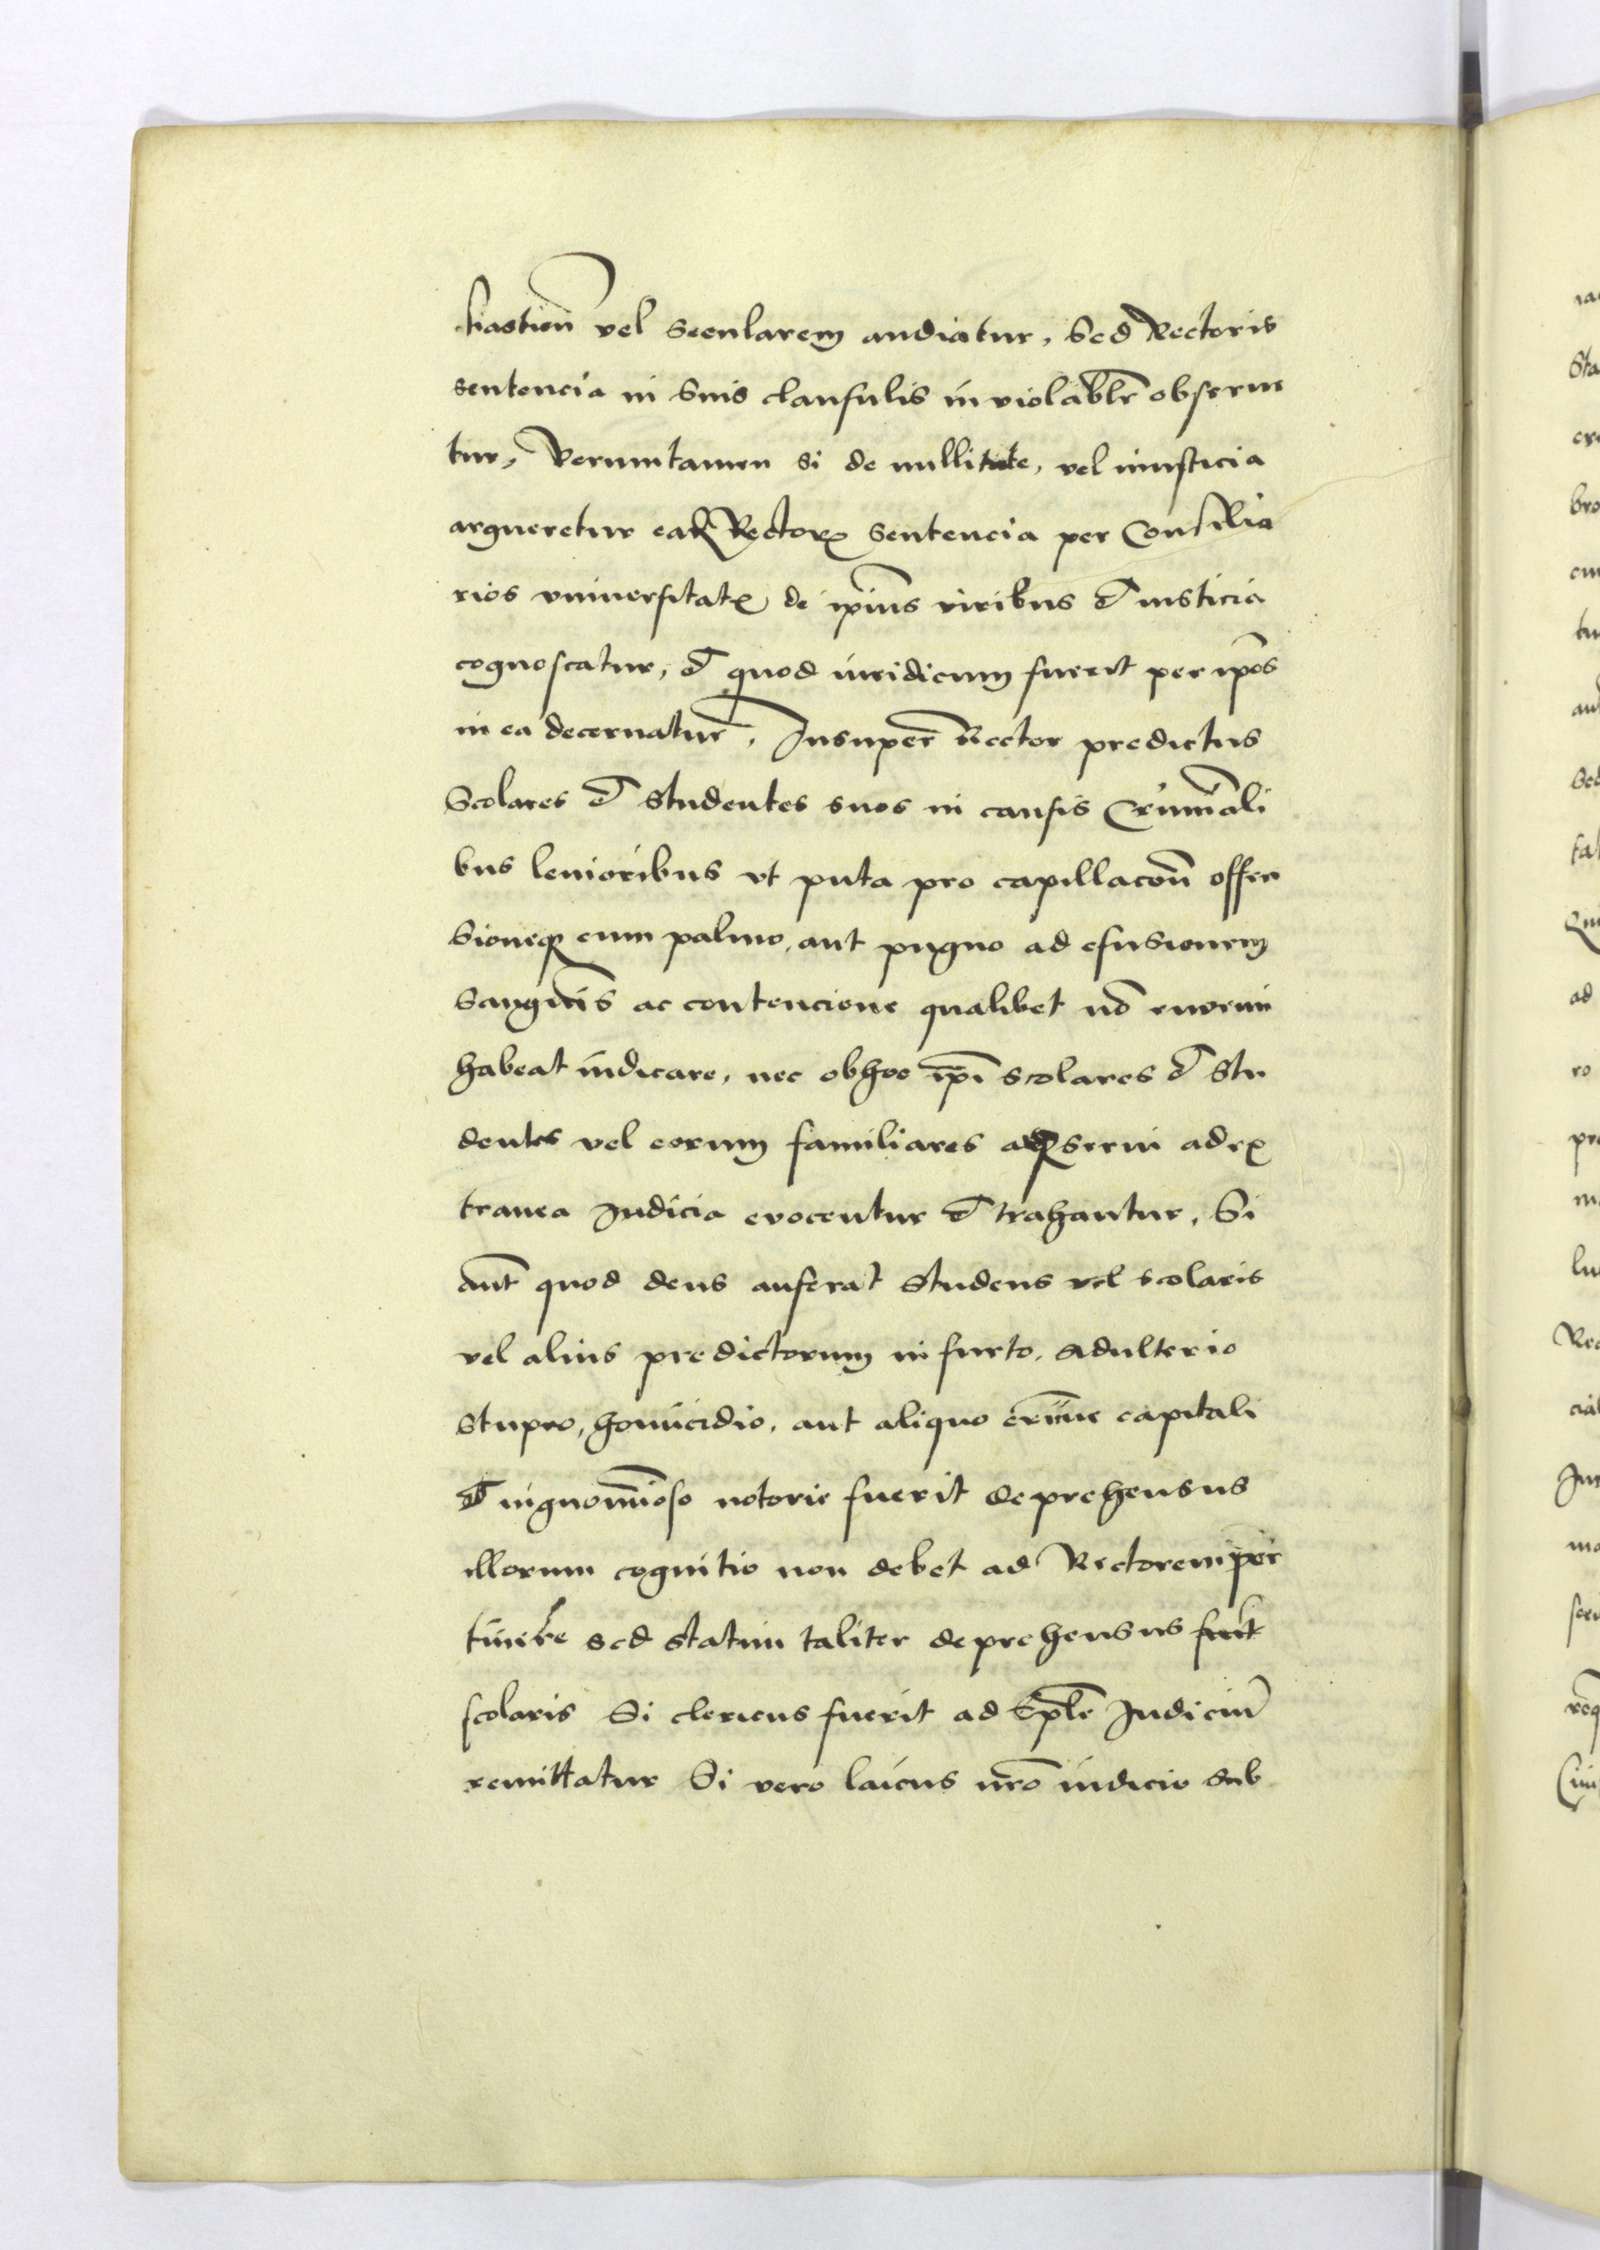 siasticũ vel secularem audiatur, Sed Rectoris
sentencia in Suis clausulis in violablr̃ obserue
tur, Verumtamen si de nullitate, vel iniusticia
argueretur Rectoris Sentencia per Consilia
rios vniuersitatis de ipĩus viribus et iusticia
cognoscatur, et quod iuridicum fuerit per ip̃os
in ea decernatur, Insuper Rector predictus
Scolares et Studentes suos in causis Crimĩali
bus leuioribus vt puta pro capillacoñ offen
Sioneq3 cum palmo, aut pugno ad efusionem
Sanguĩs ac contencione qualibet nõ enormi
habeat iudicare, nec obhoc ip̃i scolares et Stu
dentes vel eorum familiares serui adex
tranea Iudicia euocentur et trahantur, Si
aut̃ quod deus auferat Studens vel scolaris
vel alius predictorum in furto, adulterio
Stupro, homicidio, aut aliquo crimĩe capitali
et ingnomĩoso notorie fuerit deprehensus
illorum cognitio non debet ad Rectorem per
tinere sed statim taliter deprehensus
scolaris Si clericus fuerit ad Ep̃le Iudiciũ
remittatur Si vero laicus nr̃o iudicio sub